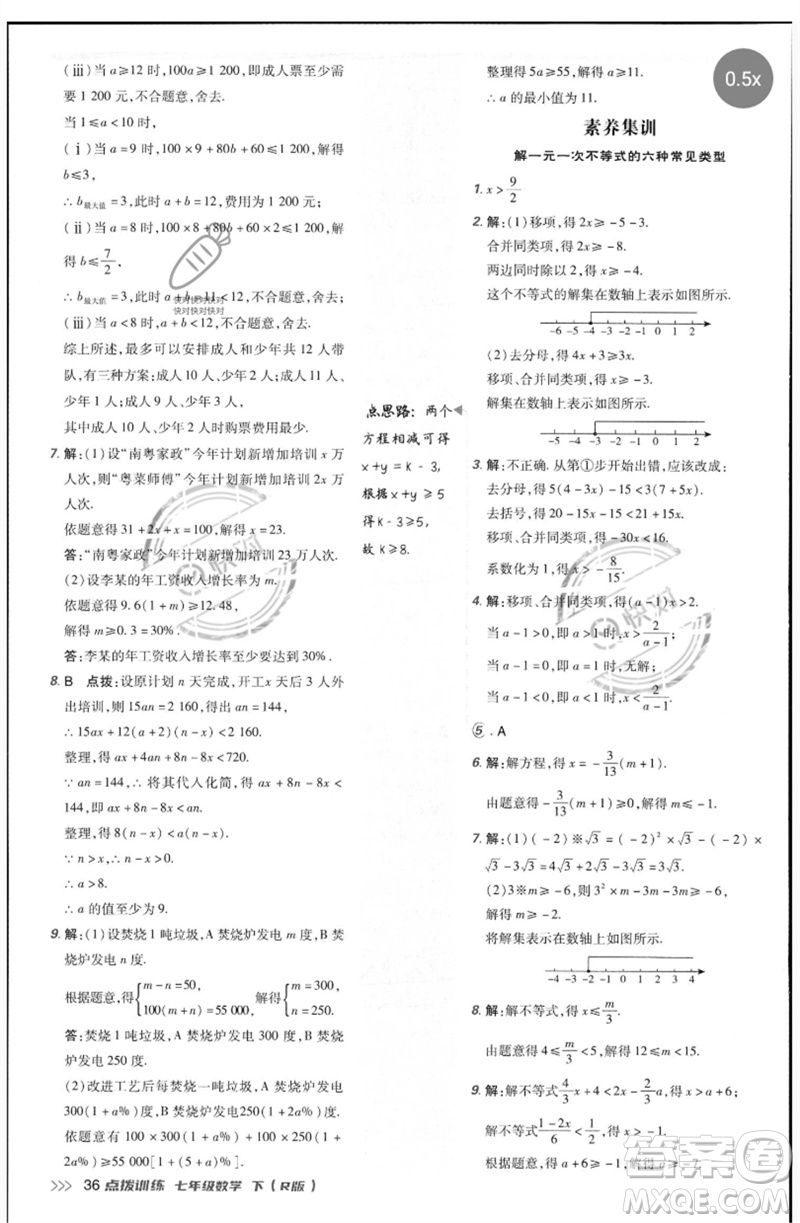 (ⅲ)当 a≥12 时,100a≥1 200,即成人票至少需
要 1 200 元,不合题意,舍去.
当 1≤a<10 时,
(ⅰ)当 a=9 时,100×9+80b+60≤1 200,解得
b≤3,
∴b最大值=3,此时 a+b=12,费用为 1 200 元.
(ⅱ)当 a=8 时,100×8+80b+60≤1 200,解
得 b≤7/2,
∴b最大值=3,此时 a+b=11<12,不合题意,舍去.
(ⅲ)当 a<8 时,a+b<12,不合题意,舍去.
综上所述,最多可以安排成人和少年共 12 人带
队,有三种方案:成人 10 人、少年 2 人;成人 11 人、
少年 1 人;成人 9 人、少年 3 人,
其中成人 10 人、少年 2 人时购票费用最少.
7. 解:(1)设“南粤家政”今年计划新增加培训 x 万
人次,则“粤菜师傅”今年计划新增加培训 2x 万
人次.
依题意得 31+2x+x=100,解得 x=23.
答:“南粤家政”今年计划新增加培训 23 万人次.
(2)设李某的年工资收入增长率为 m.
依题意得 9.6(1+m)≥12.48,
解得 m≥0.3=30%.
答:李某的年工资收入增长率至少要达到 30%.
8. B 点拨:设原计划 n 天完成,开工 x 天后 3 人外
出培训,则 15an=2 160,得出 an=144,
∴15ax+12(a+2)(n-x)<2 160.
整理,得 ax+4an+8n-8x<720.
∵an=144,∴将其代入化简,得 ax+8n-8x<
144,即 ax+8n-8x<an.
整理,得 8(n-x)<a(n-x).
∵n>x,∴n-x>0,
∴a>8.
∴a 的值至少为 9.
9. 解:(1)设焚烧 1 吨垃圾,A 焚烧炉发电 m 度,B 焚
烧炉发电 n 度.
根据题意,得{m-n=50, 100(m+n)=55 000, 解得{m=300, n=250.
答:焚烧 1 吨垃圾,A 焚烧炉发电 300 度,B 焚烧
炉发电 250 度.
(2)改进工艺后每焚烧一吨垃圾,A 焚烧炉发电
300(1+a%)度,B 焚烧炉发电 250(1+2a%)度,
依题意有 100×300(1+a%)+100×250(1+
2a%)≥55 000[1+(5+a)%].
36 点拨训练 七年级数学 下(R版)
点思路:两个
方程相减可得
x+y=k-3,
根据 x+y≥5
得 k-3≥5,
故 k≥8.
0.5x
整理得 5a≥55,解得 a≥11.
∴a 的最小值为 11.
素养集训
解一元一次不等式的六种常见类型
1. x>9/2
2. 解:(1)移项,得 2x≥-5-3.
合并同类项,得 2x≥-8.
两边同时除以 2,得 x≥-4.
这个不等式的解集在数轴上表示如图所示.
-6 -5 -4 -3 -2 -1 0 1 2
(2)去分母,得 4x+3≥3x.
移项、合并同类项,得 x≥-3.
解集在数轴上表示如图所示.
-6 -5 -4 -3 -2 -1 0 1 2
3. 解:不正确.从第①步开始出错,应该改成:
去分母,得 5(4-3x)<3(7+5x),
去括号,得 20-15x<21+15x,
移项、合并同类项,得 -30x<1,
4. 解:移项、合并同类项,得(a-1)x>2.
当 a-1>0,即 a>1 时,x>2/(a-1);
当 a-1=0,即 a=1 时,无解;
当 a-1<0,即 a<1 时,x<2/(a-1).
5. A
6. 解:解方程,得 x=-3/13(m+1).
由题意得 -3/13(m+1)≥0,解得 m≤-1.
7. 解:(1)(-2)※√3=(-2)²×√3-(-2)×
√3-3√3=4√3+2√3-3√3=3√3.
(2)3※m≥-6,则 3²m-3m-3m≥-6,
解得 m≥-2.
将解集表示在数轴上如图所示.
-4 -3 -2 -1 0 1 2 3 4
8. 解:解不等式,得 x≤m/3.
由题意得 4≤m/3<5,解得 12≤m<15.
9. 解:解不等式 4/3x+4<2x-2/3a,得 x>a+6;
解不等式 (1-2x)/6<1/2,得 x>-1.
快对快对快对
快对快对快对
快对
快对
答案圈